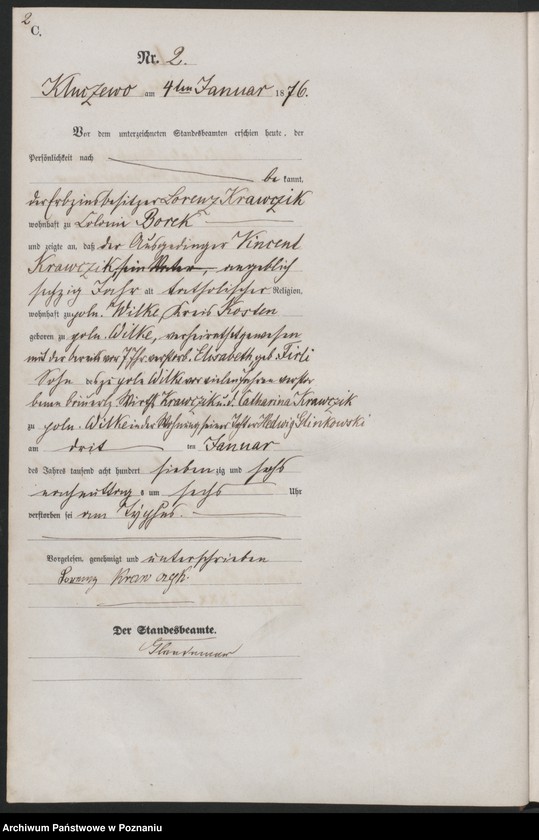 2
C.
Nr. 2.
Kluczewo am 4ten Januar 1876.
Vor dem unterzeichneten Standesbeamten erschien heute, der
Persönlichkeit nach
be kannt,
der Erbzinsbesitzer Lorenz Krawczik
wohnhaft zu Colonie Borek
und zeigte an, daß der Ausgedinger Vincent
Krawczik sein Vater, angeblich
sechzig Jahr alt katholischer Religion,
wohnhaft zu poln. Wilke Kreis Kosten
geboren zu poln. Wilke, verheirathet gewesen
mit der bereits vor 7 Jhr. verstorb. Elisabeth geb. Firli
Sohn des zu poln. Wilke vor vielen Jahren verstor
benen Wirth Krawczik u. d. Catharina Krawczik
zu poln. Wilke in der Wohnung seiner Tochter Hedwig Glinkowski
am drit ten Januar
des Jahres tausend acht hundert sieben zig und sechs
nachmittag s um sechs Uhr
verstorben sei am Typhus.
Vorgelesen, genehmigt und unterschrieben
Lorenz Krawczyk.
Der Standesbeamte.
Archiwum Państwowe w Poznaniu